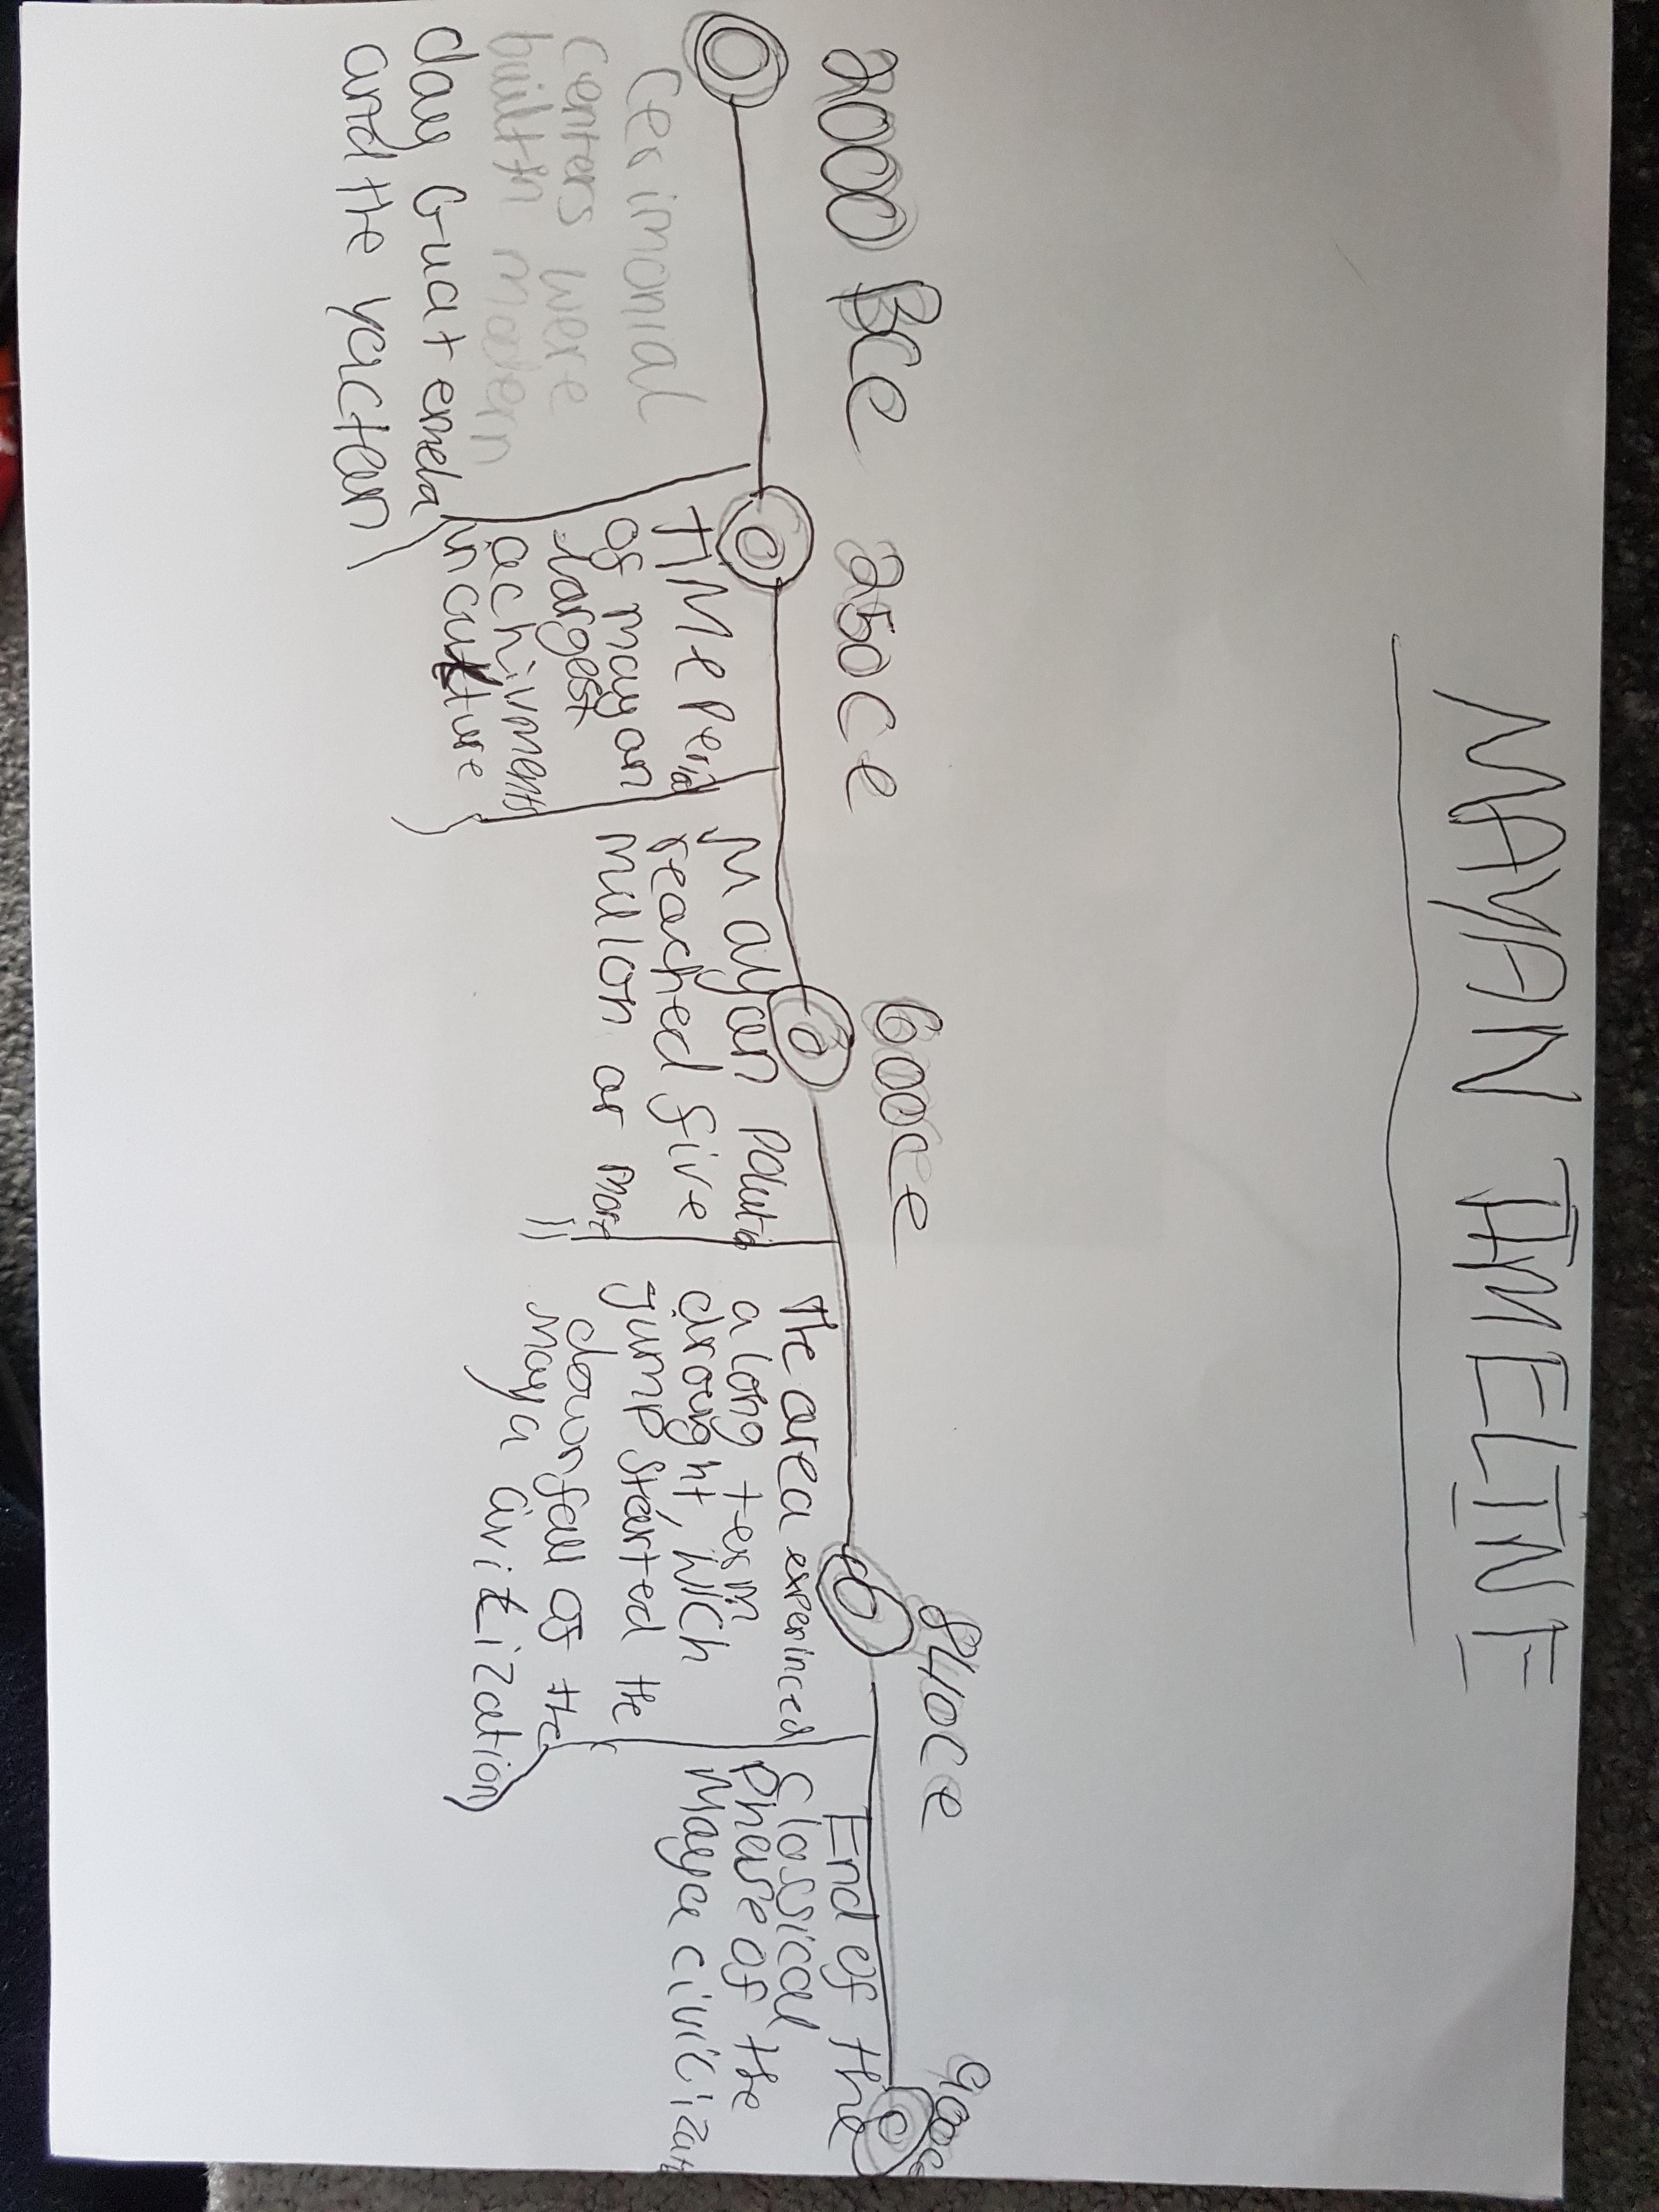 MAYAN TIMELINE
2000 BCE
250CE
600CE
840CE
900CE
Cerimonial
Centers were
built in modern
day Guatemela
and the yuctan
TIMe Period
of mayan
largest
achivments
in culture
Mayan Poluti
reached five
million or more
The area experinced
a long term
drought, wich
jump started the
downfall of the
Maya civilization
End of the
Classical
Phase of the
Maya civiliz